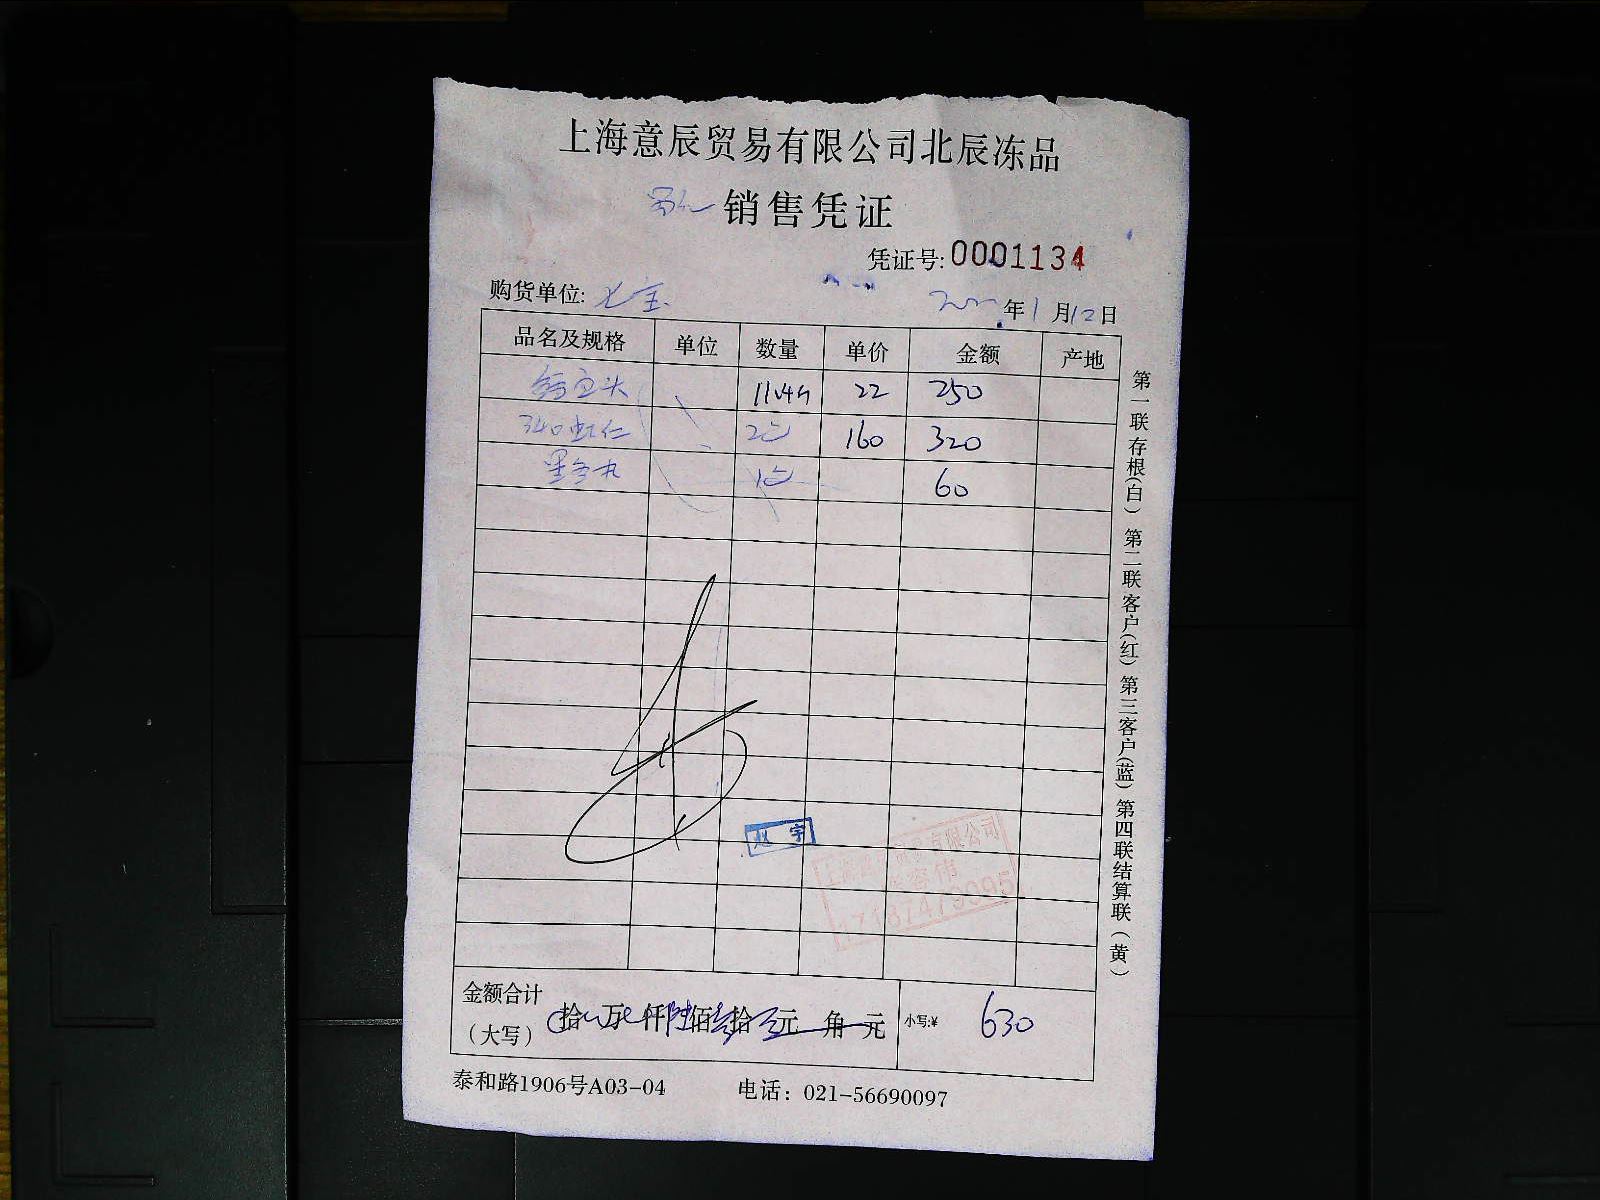 上海意辰贸易有限公司北辰冻品
销售凭证
凭证号:0001134
购货单位: 七宝
年1月12日
品名及规格 单位 数量 单价 金额 产地
22 250
340虾仁 160 320
墨鱼丸 60
赵宇
有限公司
金额合计
(大写) 拾 万 仟陆佰叁拾 元 角 元 小写:¥ 630
泰和路1906号A03-04 电话: 021-56690097
第一联存根(白) 第二联客户(红) 第三客户(蓝) 第四联结算联(黄)